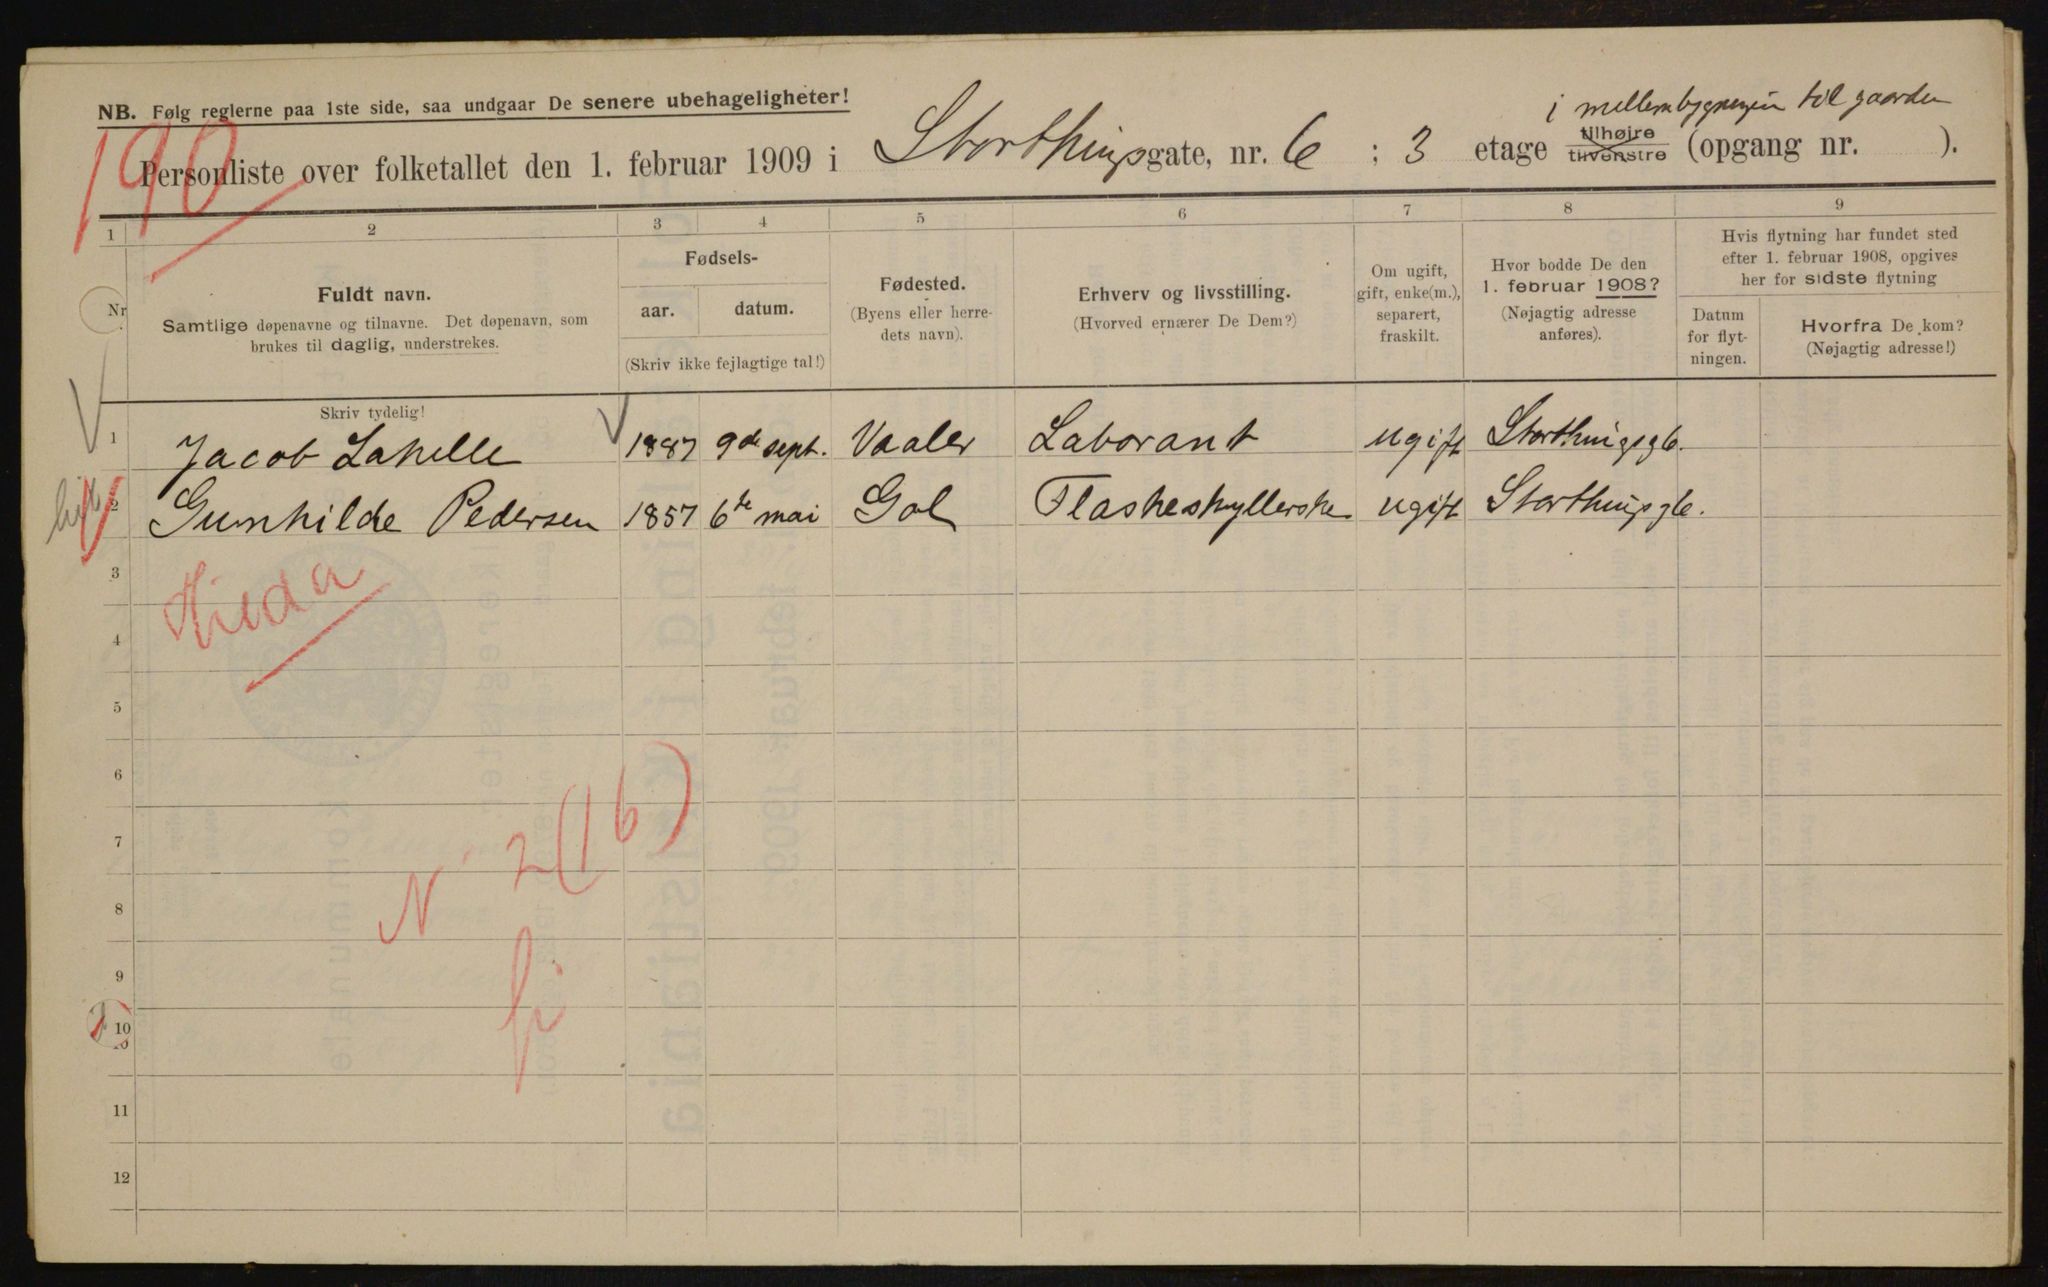 NB. Følg reglerne paa 1ste side, saa undgaar De senere ubehageligheter!
190
i mellembygningen til gaarden
Personliste over folketallet den 1. februar 1909 i Storthingsgate, nr. 6 ; 3 etage tilhøjre tilvenstre (opgang nr. ).
1 2 3 4 5 6 7 8 9
Nr.
Fuldt navn.
Samtlige døpenavne og tilnavne. Det døpenavn, som
brukes til daglig, understrekes.
Fødsels-
aar. datum.
(Skriv ikke fejlagtige tal!)
Fødested.
(Byens eller herre-
dets navn).
Erhverv og livsstilling.
(Hvorved ernærer De Dem?)
Om ugift,
gift, enke(m.),
separert,
fraskilt.
Hvor bodde De den
1. februar 1908?
(Nøjagtig adresse
anføres).
Hvis flytning har fundet sted
efter 1. februar 1908, opgives
her for sidste flytning
Datum
for flyt-
ningen.
Hvorfra De kom?
(Nøjagtig adresse!)
Skriv tydelig!
1 Jacob Lahelle 1887 9de sept. Vaaler Laborant ugift Storthingsg 6.
2 Gunhilde Pedersen 1857 6te mai Gol Flaskeskyllerske ugift Storthingsg 6.
3
4
5
6
7
8
9
10
11
12
N 2 (16)